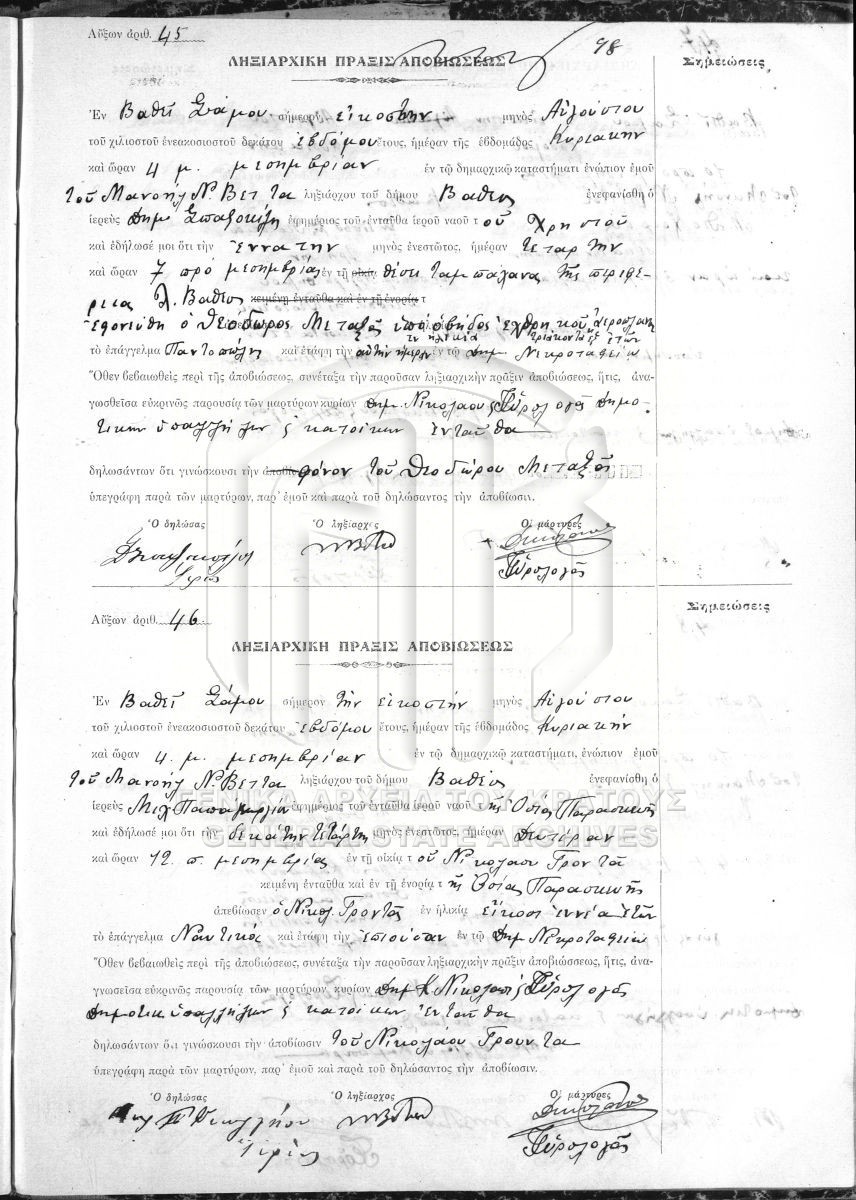 Αὔξων ἀριθ. 45
98
ΛΗΞΙΑΡΧΙΚΗ ΠΡΑΞΙΣ ΑΠΟΒΙΩΣΕΩΣ
Σημειώσεις
Ἐν Βαθεῖ Σάμου σήμερον εἰκοστὴν μηνὸς Αὐγούστου
τοῦ χιλιοστοῦ ἐνεακοσιοστοῦ δεκάτου ἑβδόμου ἔτους, ἡμέραν τῆς ἑβδομάδος Κυριακὴν
καὶ ὥραν 4 μ. μεσημβρίαν ἐν τῷ δημαρχικῷ καταστήματι ἐνώπιον ἐμοῦ
τοῦ Μανοὴλ Ν. Βέττα ληξιάρχου τοῦ δήμου Βαθέος ἐνεφανίσθη ὁ
ἱερεὺς Δημ. ἐφημέριος τοῦ ἐνταῦθα ἱεροῦ ναοῦ τοῦ Χρηστοῦ
καὶ ἐδήλωσέ μοι ὅτι τὴν ἐννάτην μηνὸς ἐνεστῶτος, ἡμέραν τετάρτην
καὶ ὥραν 7 πρὸ μεσημβρίας ἐν τῇ οἰκίᾳ θέσει Ταμπάχανα τῆς περιφε-
ρείας Λ. Βαθέος κειμένῃ ἐνταῦθα καὶ ἐν τῇ ἐνορίᾳ τ
ἐφονεύθη ὁ Θεόδωρος Μεταξᾶς ὑπὸ ὀβίδος ἐχθρικοῦ ἀεροπλάνου
ἐν ἡλικίᾳ τριάκοντα ἓξ ἐτῶν
τὸ ἐπάγγελμα Παντοπώλη καὶ ἐτάφη τὴν αὐτὴν ἡμέραν ἐν τῷ Δημ. Νεκροταφείῳ
Ὅθεν βεβαιωθεὶς περὶ τῆς ἀποβιώσεως, συνέταξα τὴν παροῦσαν ληξιαρχικὴν πρᾶξιν ἀποβιώσεως, ἥτις, ἀνα-
γνωσθεῖσα εὐκρινῶς παρουσίᾳ τῶν μαρτύρων κυρίων Δημ. Νικολάου ς Φυρολογᾶ Δημο-
τικῶν ὑπαλλήλων ς κατοίκων ἐνταῦθα
δηλωσάντων ὅτι γινώσκουσι τὴν ἀποβίω φόνον τοῦ Θεοδώρου Μεταξᾶ
ὑπεγράφη παρὰ τῶν μαρτύρων, παρ' ἐμοῦ καὶ παρὰ τοῦ δηλώσαντος τὴν ἀποβίωσιν.
Ὁ δηλώσας Ὁ ληξίαρχος Οἱ μάρτυρες
Φυρολογᾶς
Αὔξων ἀριθ. 46
Σημειώσεις
ΛΗΞΙΑΡΧΙΚΗ ΠΡΑΞΙΣ ΑΠΟΒΙΩΣΕΩΣ
Ἐν Βαθεῖ Σάμου σήμερον τὴν εἰκοστὴν μηνὸς Αὐγούστου
τοῦ χιλιοστοῦ ἐνεακοσιοστοῦ δεκάτου ἑβδόμου ἔτους, ἡμέραν τῆς ἑβδομάδος Κυριακὴν
καὶ ὥραν 4. μ. μεσημβρίαν ἐν τῷ δημαρχικῷ καταστήματι, ἐνώπιον ἐμοῦ
τοῦ Μανοὴλ Ν. Βέττα ληξιάρχου τοῦ δήμου Βαθέος ἐνεφανίσθη ὁ
ἱερεὺς Μιχ. Παπαγεωργίου ἐφημέριος τοῦ ἐνταῦθα ἱεροῦ ναοῦ τῆς Ὁσίας Παρασκευῆς
ΓΕΝΙΚΑ ΑΡΧΕΙΑ ΤΟΥ ΚΡΑΤΟΥΣ
GENERAL STATE ARCHIVES
καὶ ἐδήλωσέ μοι ὅτι τὴν δεκάτην τετάρτην μηνὸς ἐνεστῶτος, ἡμέραν Δευτέραν
καὶ ὥραν 12 π. μεσημβρίας ἐν τῇ οἰκίᾳ τοῦ Νικολάου Γροντᾶ
κειμένῃ ἐνταῦθα καὶ ἐν τῇ ἐνορίᾳ τῆς Ὁσίας Παρασκευῆς
ἀπεβίωσεν ὁ Νικόλ. Γροντᾶς ἐν ἡλικίᾳ εἴκοσι ἐννέα ἐτῶν
τὸ ἐπάγγελμα Ναυτικὸς καὶ ἐτάφη τὴν ἐπιοῦσαν ἐν τῷ Δημ. Νεκροταφείῳ
Ὅθεν βεβαιωθεὶς περὶ τῆς ἀποβιώσεως, συνέταξα τὴν παροῦσαν ληξιαρχικὴν πρᾶξιν ἀποβιώσσεως, ἥτις, ἀνα-
γνωσεῖσα εὐκρινῶς παρουσίᾳ τῶν μαρτύρων κυρίων Δημ. Κ. Νικολάου ς Φυρολογᾶς
Δημοτικ. ὑπαλλήλων ς κατοίκων ἐνταῦθα
δηλωσάντων ὅτι γινώσκουσι τὴν ἀποβίωσιν τοῦ Νικολάου Γρουντᾶ
ὑπεγράφη παρὰ τῶν μαρτύρων, παρ' ἐμοῦ καὶ παρὰ τοῦ δηλώσαντος τὴν ἀποβίωσιν.
Ὁ δηλώσας Ὁ ληξίαρχος Οἱ μάρτυρες
Φυρολογᾶς